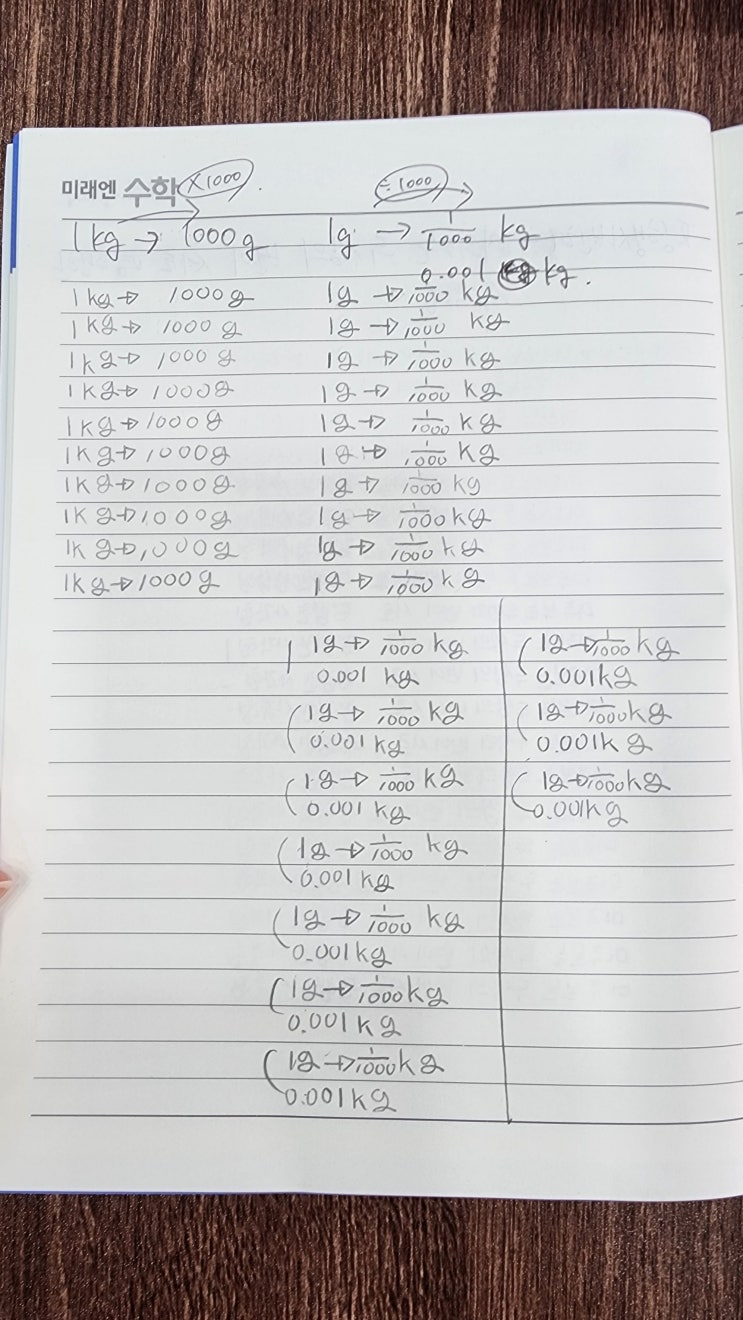 미래엔 수학 ×1000 ÷1000
1kg → 1000g 1g → 1/1000 kg
0.001 kg.
1kg → 1000g 1g → 1/1000 kg
1kg → 1000g 1g → 1/1000 kg
1kg → 1000g 1g → 1/1000 kg
1kg → 1000g 1g → 1/1000 kg
1kg → 1000g 1g → 1/1000 kg
1kg → 1000g 1g → 1/1000 kg
1kg → 1000g 1g → 1/1000 kg
1kg → 1000g 1g → 1/1000 kg
1kg → 1000g 1g → 1/1000 kg
1kg → 1000g 1g → 1/1000 kg
1g → 1/1000 kg
0.001 kg
1g → 1/1000 kg
0.001 kg
1g → 1/1000 kg
0.001 kg
1g → 1/1000 kg
0.001 kg
1g → 1/1000 kg
0.001 kg
1g → 1/1000 kg
0.001 kg
1g → 1/1000 kg
0.001 kg
1g → 1/1000 kg
0.001kg
1g → 1/1000 kg
0.001kg
1g → 1/1000 kg
0.001kg